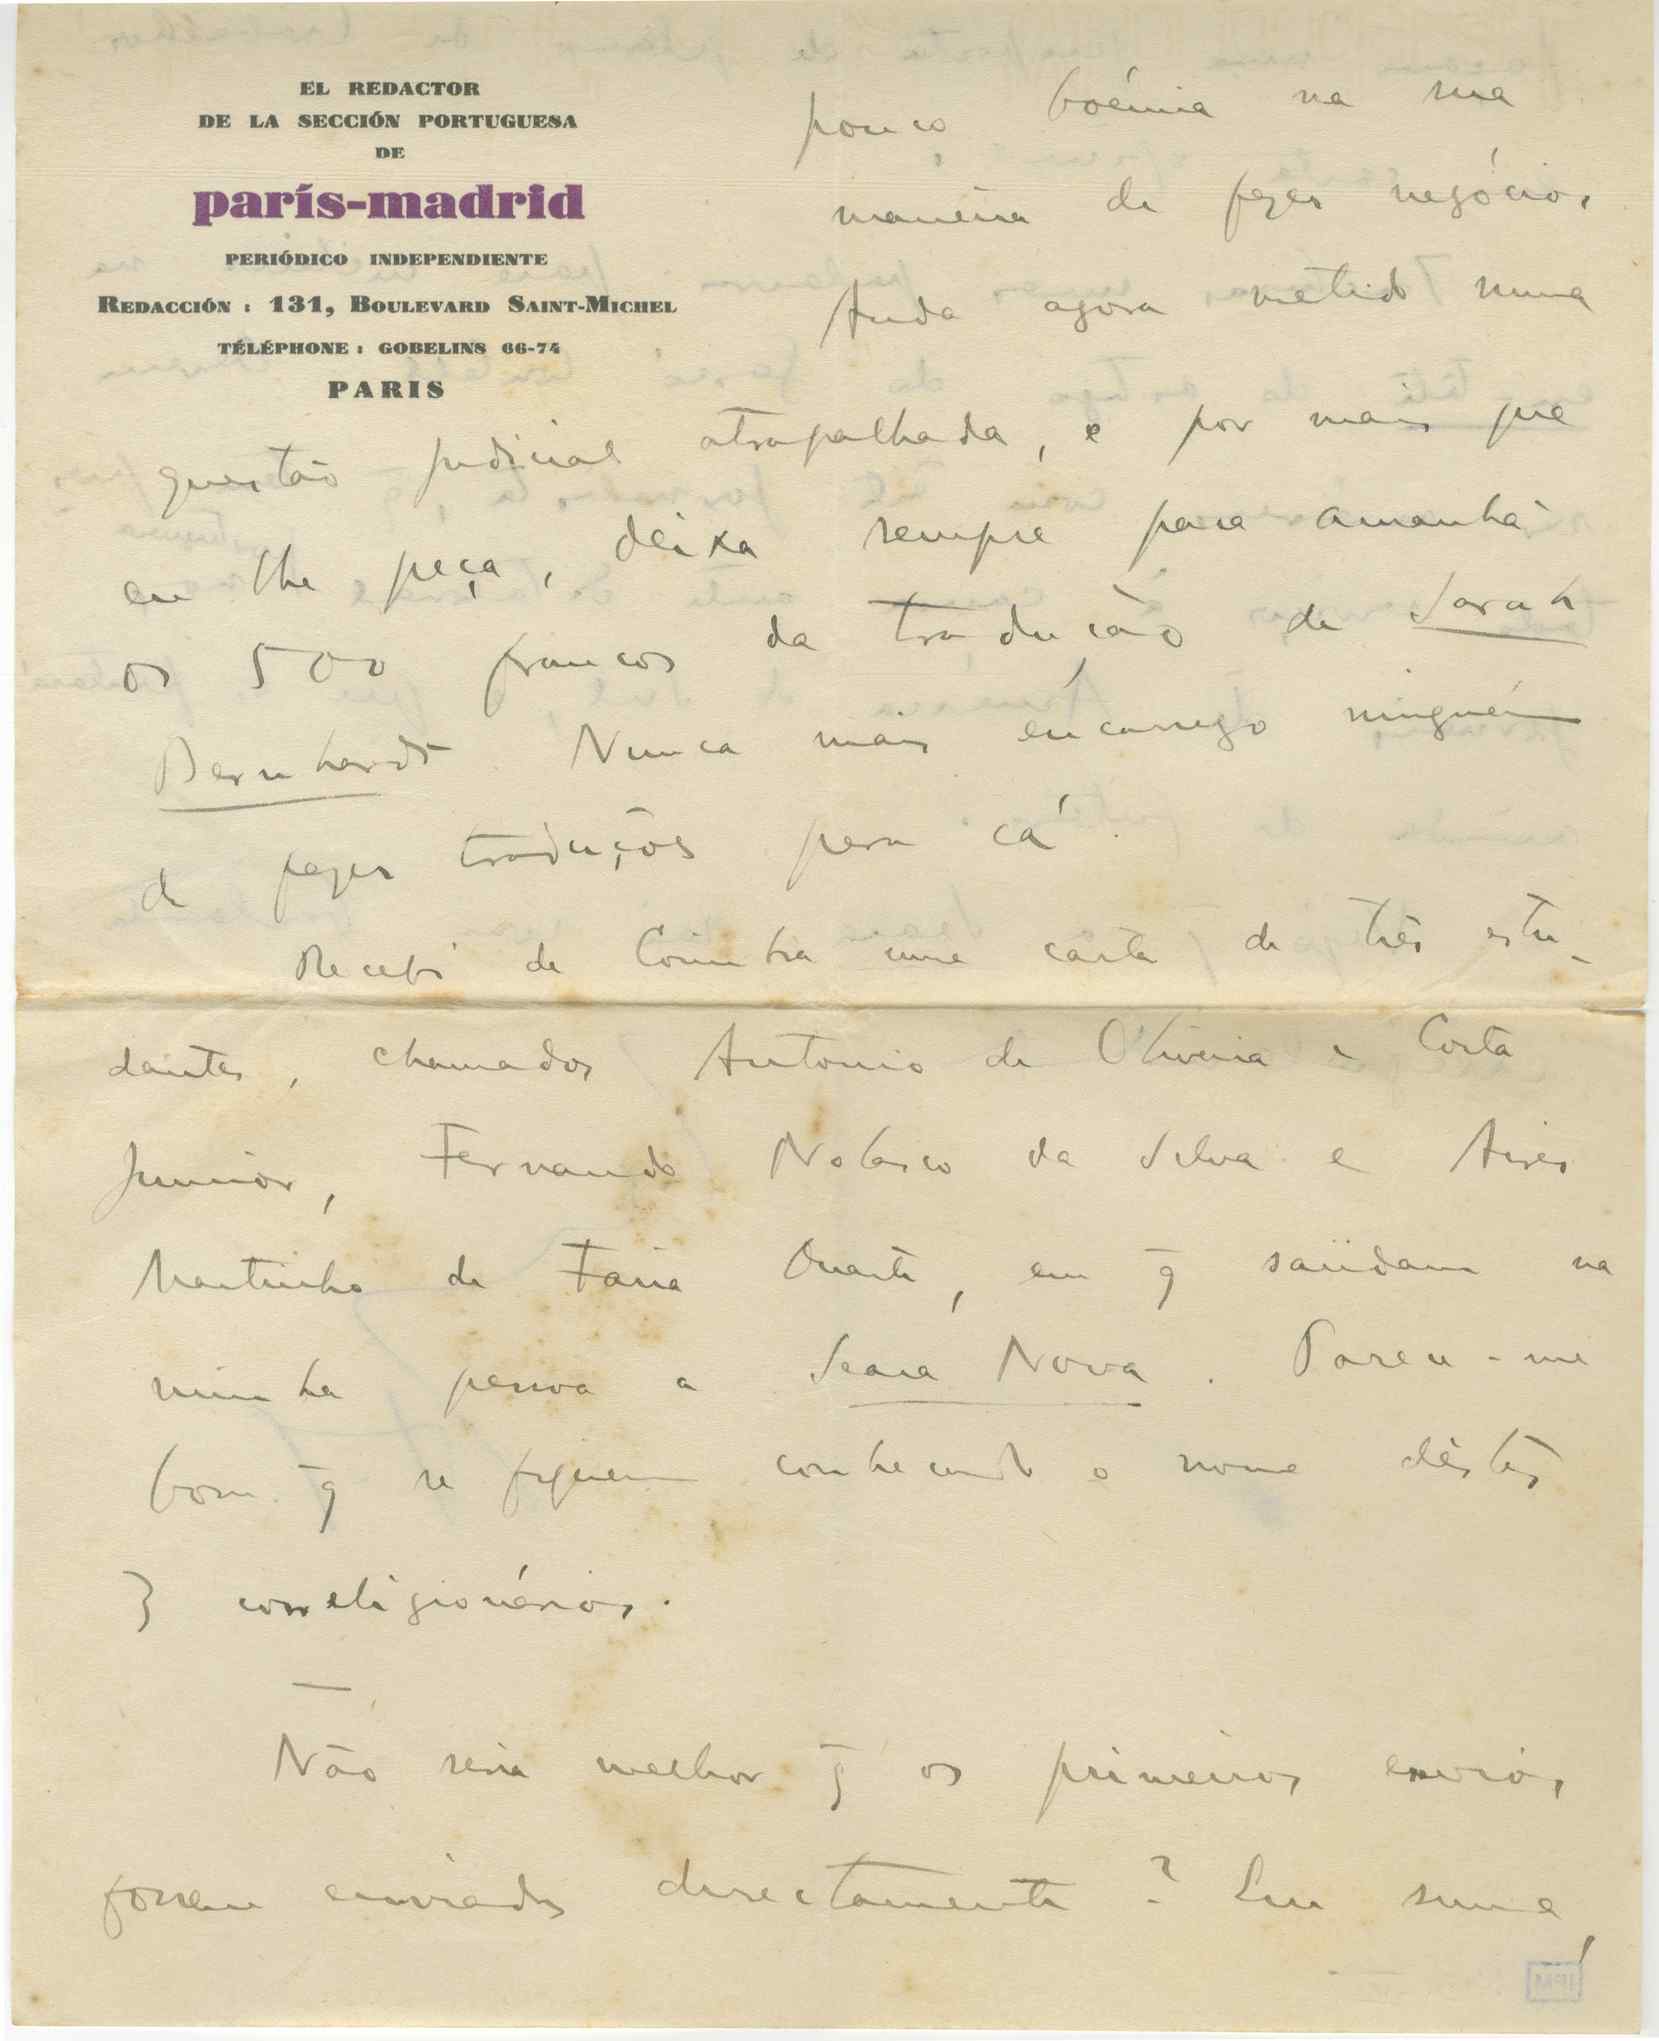 EL REDACTOR
DE LA SECCIÓN PORTUGUESA
DE
parís-madrid
PERIÓDICO INDEPENDIENTE
REDACCIÓN : 131, BOULEVARD SAINT-MICHEL
TÉLÉPHONE : GOBELINS 66-74
PARIS
pouco boémia na sua
maneira de fazer negócios.
Anda agora metido numa
questão judicial atrapalhada, e por mais que
eu lhe peça, deixa sempre para amanhã
os 500 francos da tradução de Sarah
Bernhardt. Nunca mais encarrego ninguém
de fazer traduções para cá.
Recebi de Coimbra uma carta de três estu-
dantes, chamados Antonio de Oliveira e Costa
Junior, Fernando Nolasco da Silva e Aires
Martinho de Faria Duarte, em q̄ saúdam na
minha pessoa a Seara Nova. Parece-me
bom q̄ se fiquem conhecendo o nome dêstes
3 correligionários.
—
Não seria melhor q̄ os primeiros envios
fossem enviados directamente? Em suma,
IPM